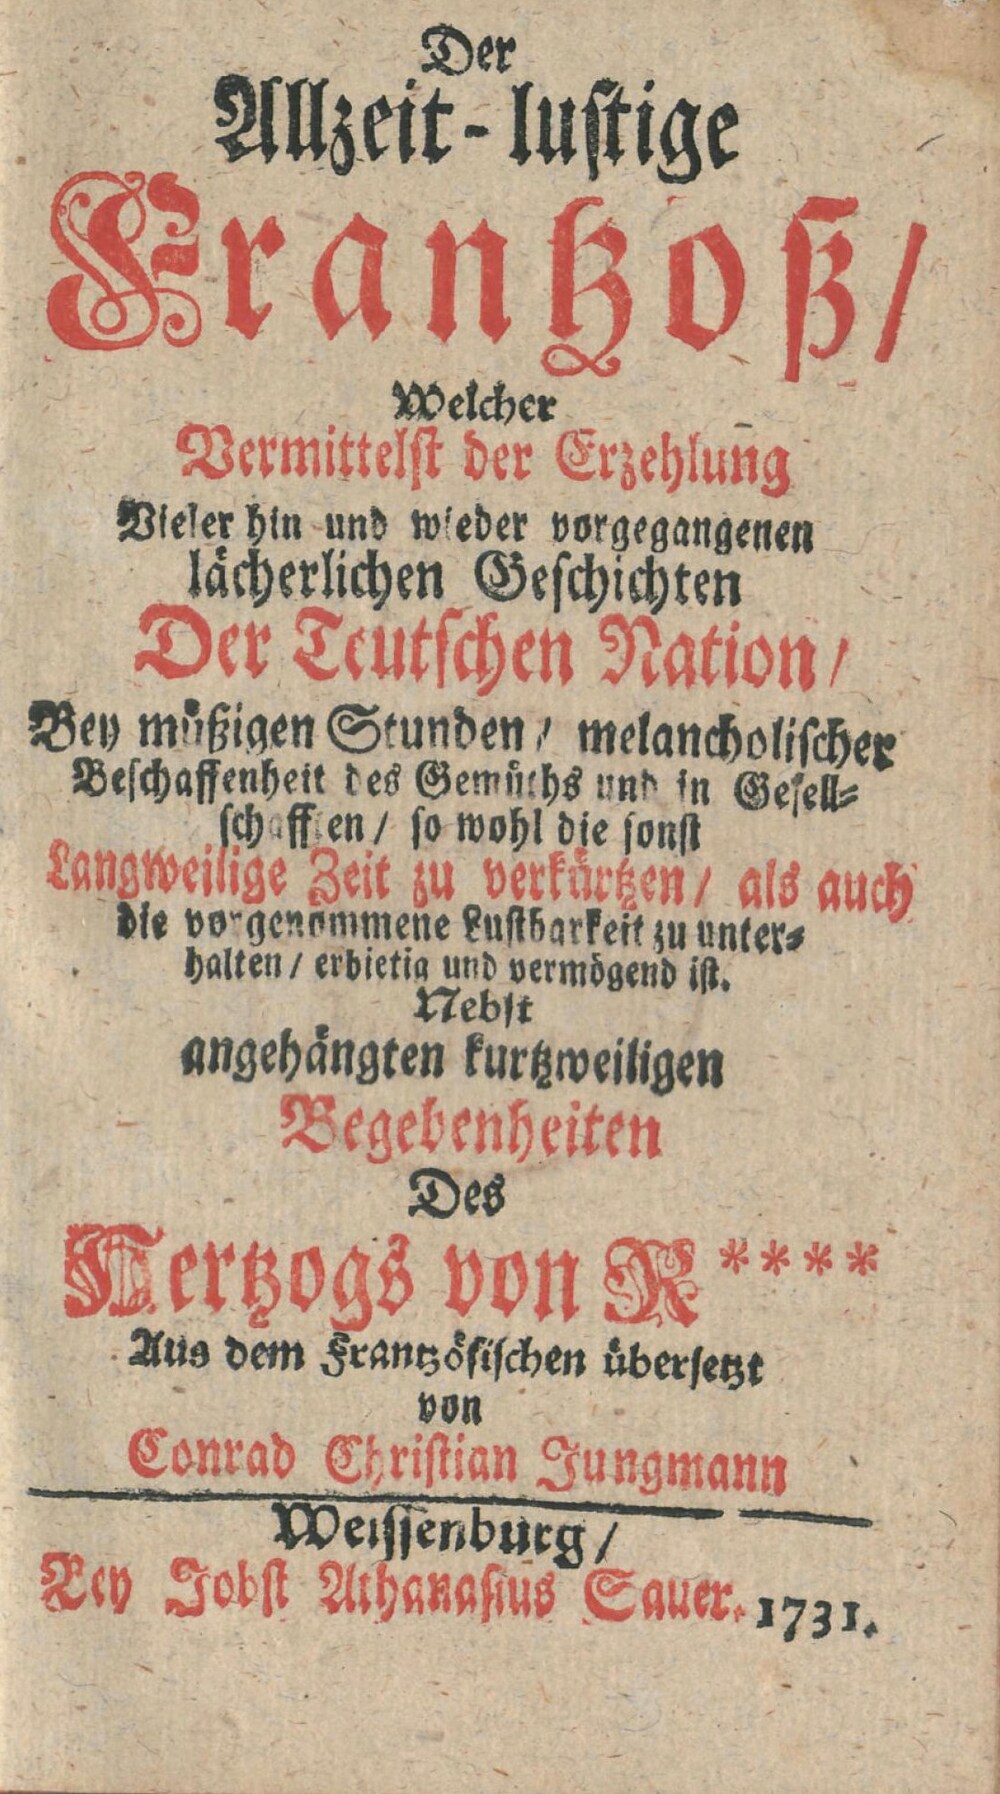 Der
Allzeit-lustige
Frantzoß/
Welcher
Vermittelst der Erzehlung
Vieler hin und wieder vorgegangenen
lächerlichen Geschichten
Der Teutschen Nation/
Bey müßigen Stunden/ melancholischer
Beschaffenheit des Gemüths und in Gesell-
schafften/ so wohl die sonst
Langweilige Zeit zu verkürtzen/ als auch
die vorgenommene Lustbarkeit zu unter-
halten/ erbietig und vermögend ist.
Nebst
angehängten kurtzweiligen
Begebenheiten
Des
Hertzogs von R****
Aus dem Frantzösischen übersetzt
von
Conrad Christian Jungmann
Weissenburg/
Bey Jobst Athanasius Sauer. 1731.